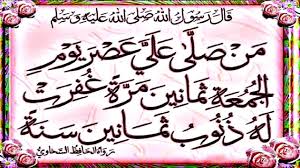 قَالَ رَسُوْلُ اللهِ صَلَّى اللهُ عَلَيْهِ وَسَلَّمَ
مَنْ صَلَّى عَلَيَّ عَصْرَ يَوْمِ
الْجُمُعَةِ ثَمَانِيْنَ مَرَّةً غُفِرَتْ
لَهُ ذُنُوْبُ ثَمَانِيْنَ سَنَةً
رواه الحافظ السخاوي